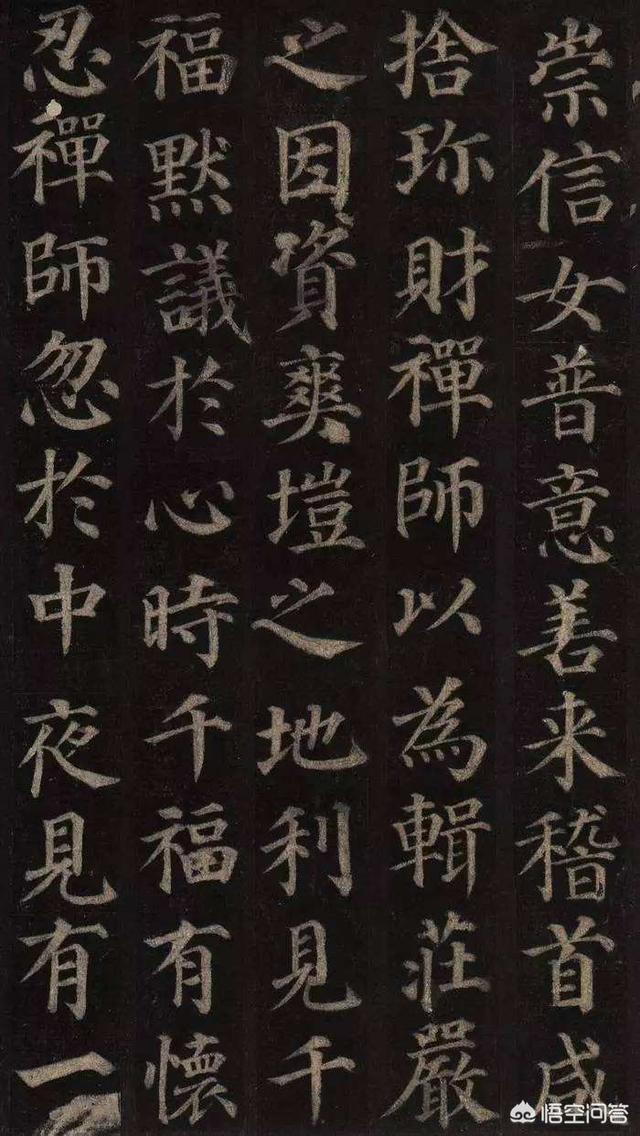 崇信女普意善来稽首咸
捨珎財禪師以為輯莊嚴
之因資爽塏之地利見千
福默議於心時千福有懷
忍禪師忽於中夜見有一
悟空问答